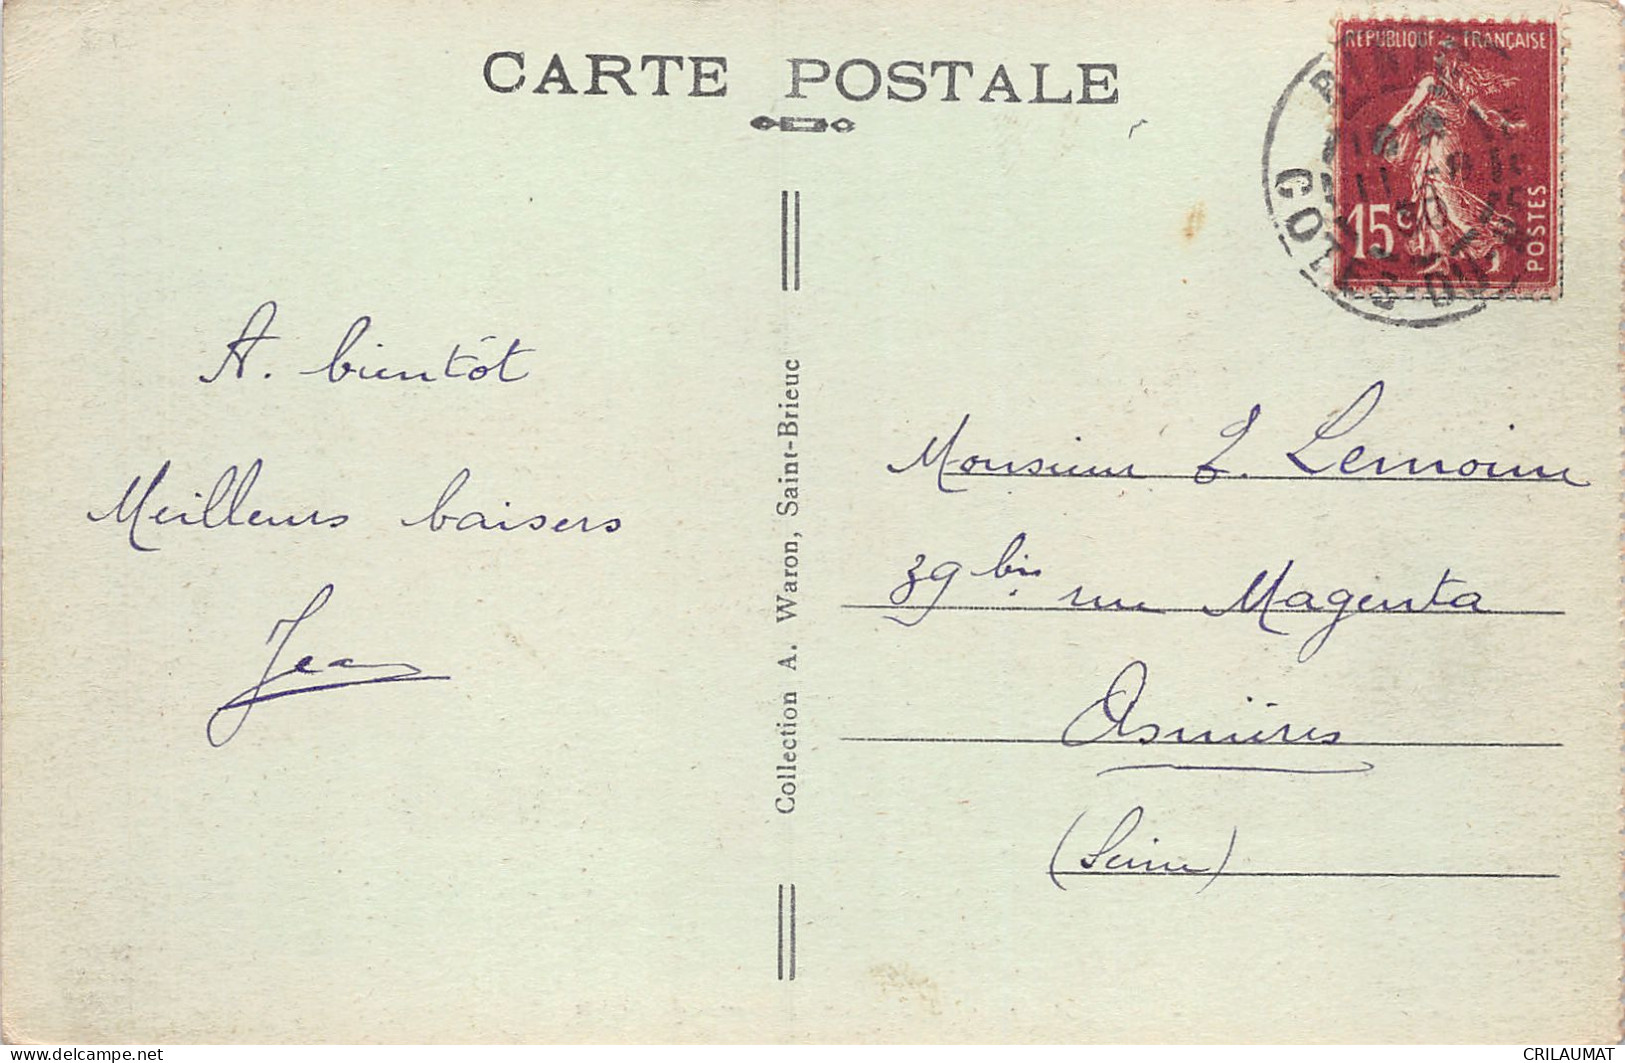 CARTE POSTALE
REPUBLIQUE FRANÇAISE
15c
POSTES
COTES-DU-N
11 -8
30
A. bientôt
Meilleurs baisers
Jean
Collection A. Waron, Saint-Brieuc
Monsieur L. Lemoine
39 bis rue Magenta
Asnières
(Seine)
delcampe.net
CRILAUMAT